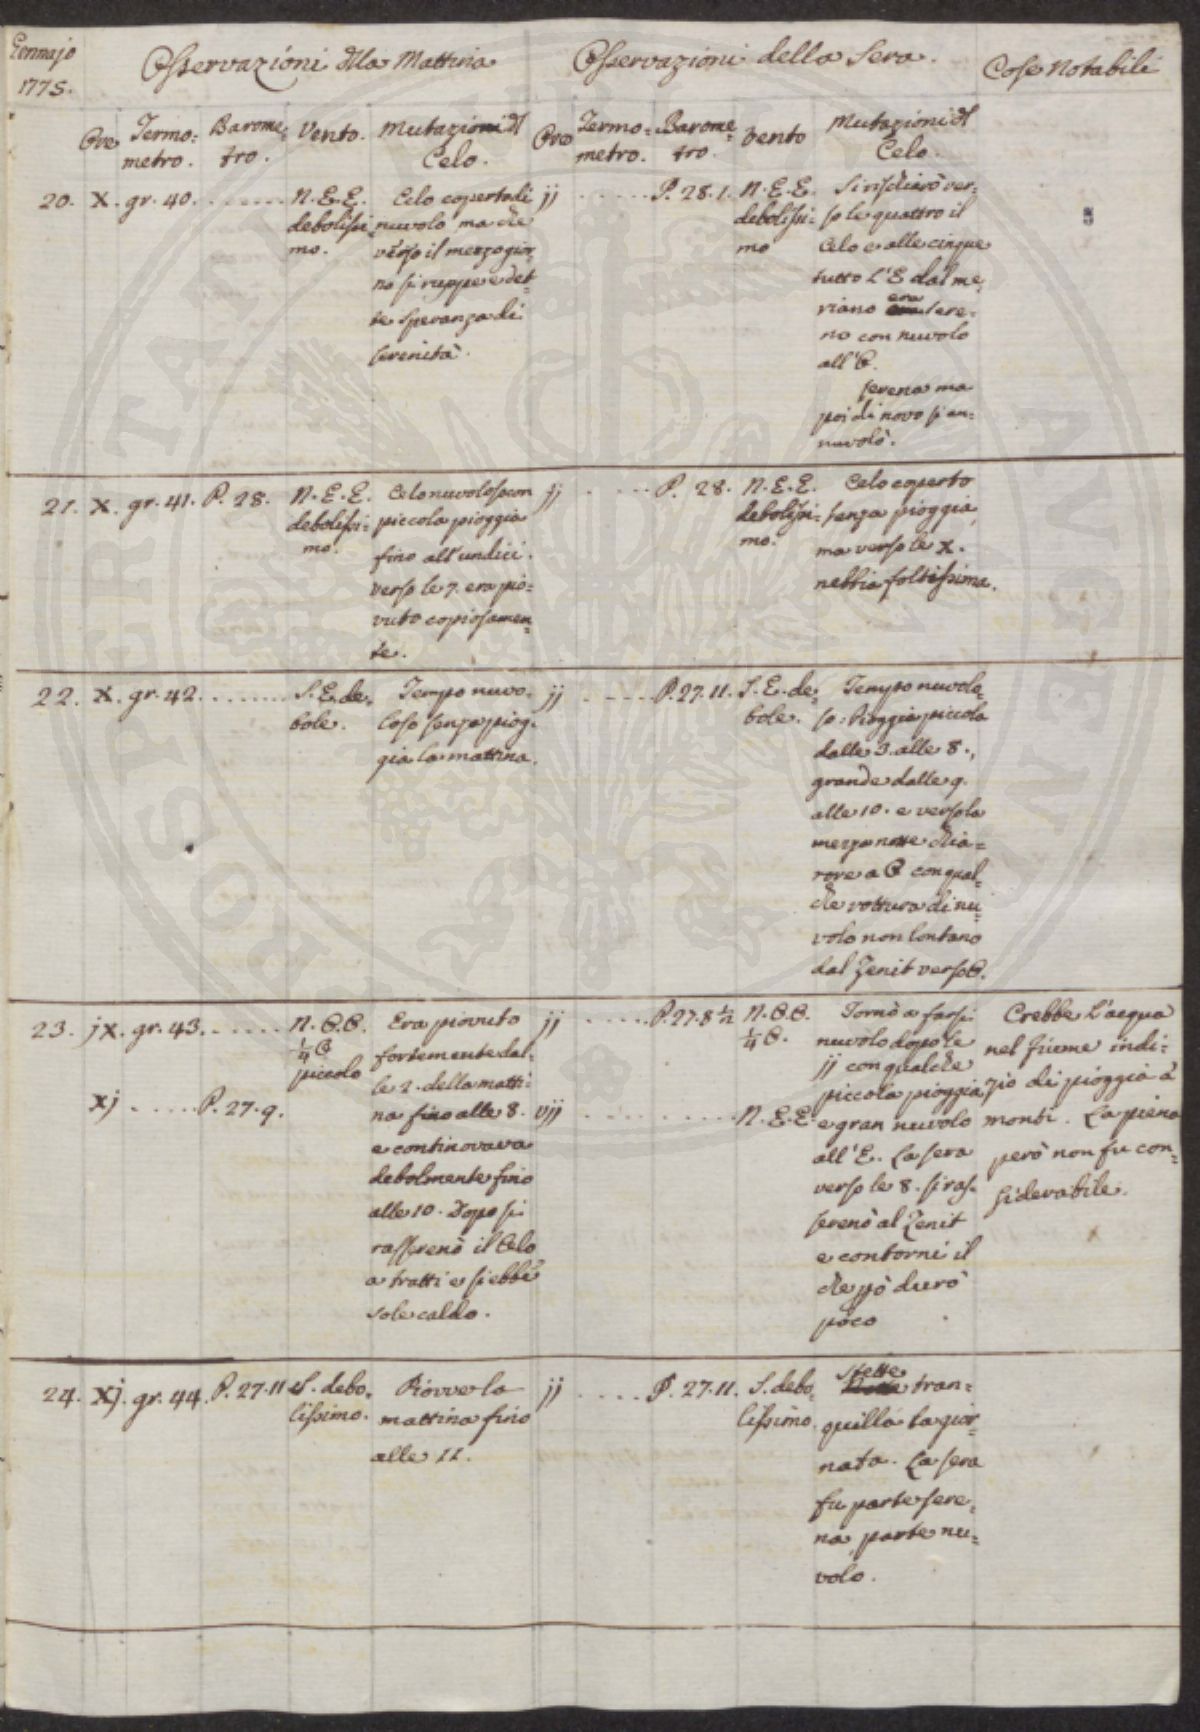 Gennajo
1775.
Osservazioni dlla Mattina
Osservazioni della Sera.
Cose Notabili
Ore
Termo=
metro.
Barome=
tro.
Vento.
Mutazioni dl
Celo.
Ore
Termo=
metro.
Barome=
tro.
Vento
Mutazioni dl
Celo.
20. X. gr. 40. . . . . . . .
N. E. E.
debolissi=
mo.
Celo coperto di
nuvolo ma che
verso il mezzogior=
no si ruppe e det=
te speranza di
serenità.
jj . . . . . . P. 28. 1.
N. E. E.
debolissi=
mo
Si rischiarò ver=
so le quattro il
Celo e alle cinque
tutto l'E dal me
riano era sere=
no con nuvolo
all'O.
serena ma
poi di novo si an=
nuvolò.
21. X. gr. 41. P. 28.
N. E. E.
debolissi=
mo.
Celo nuvoloso con
piccola pioggia
fino all'undici.
verso le 7. era pio=
vuto copiosamen=
te.
jj . . . . . . P. 28.
N. E. E.
debolissi=
mo.
Celo coperto
senza pioggia,
ma verso le X.
nebbia foltissima.
22. X. gr. 42. . . . . . . .
S. E. de=
bole.
Tempo nuvo=
loso senza piog=
gia la mattina.
jj . . . . . . P. 27. 11.
S. E. de=
bole.
Tempo nuvolo=
so. Pioggia piccola
dalle 3. alle 8.,
grande dalle 9.
alle 10. e verso la
mezza notte chia=
rore a O con qual=
che rottura di nu=
volo non lontano
dal Zenit verso O.
23. jX. gr. 43. . . . . . .
N. O. O.
1/4 O
piccolo
Xj . . . . . P. 27. 9.
Era piovuto
fortemente dal=
le 2. della matti=
na fino alle 8.
e continovava
debolmente fino
alle 10. Dopo si
rasserenò il Celo
a tratti e si ebbe
sole caldo.
jj . . . . . P. 27. 8 1/2
N. O. O.
1/4 O.
vjj . . . . . . . . . . .
N. E. E.
Tornò a farsi
nuvolo dopo le
jj con qualche
piccola pioggia,
e gran nuvolo
all'E. La sera
verso le 8. si ras=
serenò al Zenit
e contorni il
che pò durò
poco
Crebbe l'acqua
nel fiume indi=
zio di pioggia a'
monti. La piena
però non fu con=
siderabile.
24. Xj. gr. 44. P. 27. 11
S. debo=
lissimo.
Piovve la
mattina fino
alle 11.
jj . . . . . P. 27. 11.
S. debo=
lissimo.
stette
tran=
quilla la gior=
nata. La sera
fu parte sere=
na, parte nu=
volo.